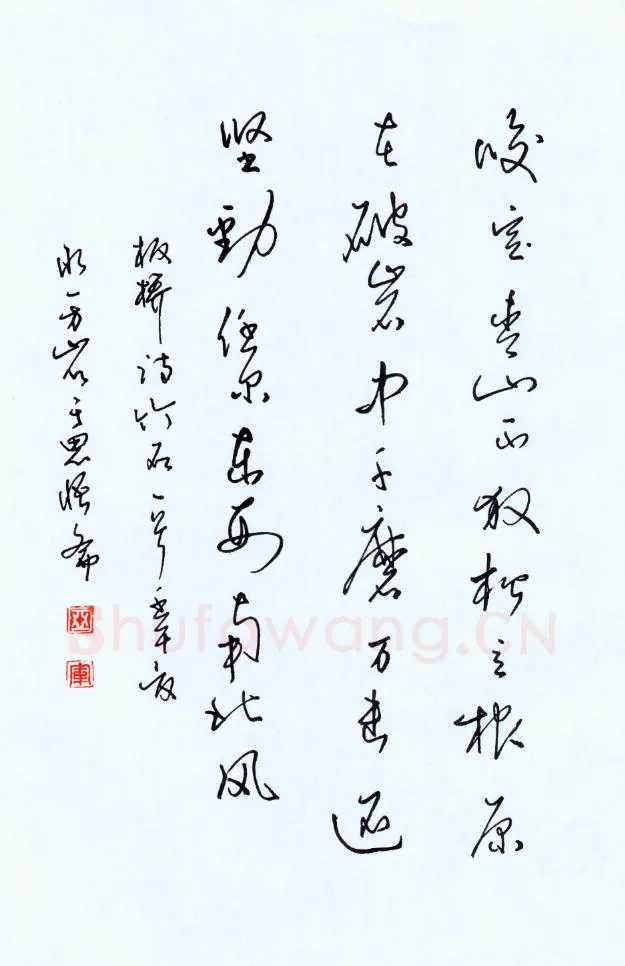 咬定青山不放松立根原
在破岩中千磨万击还
坚劲任尔东西南北风
板桥诗竹石一
方岩于思斋
Shufawang.CN